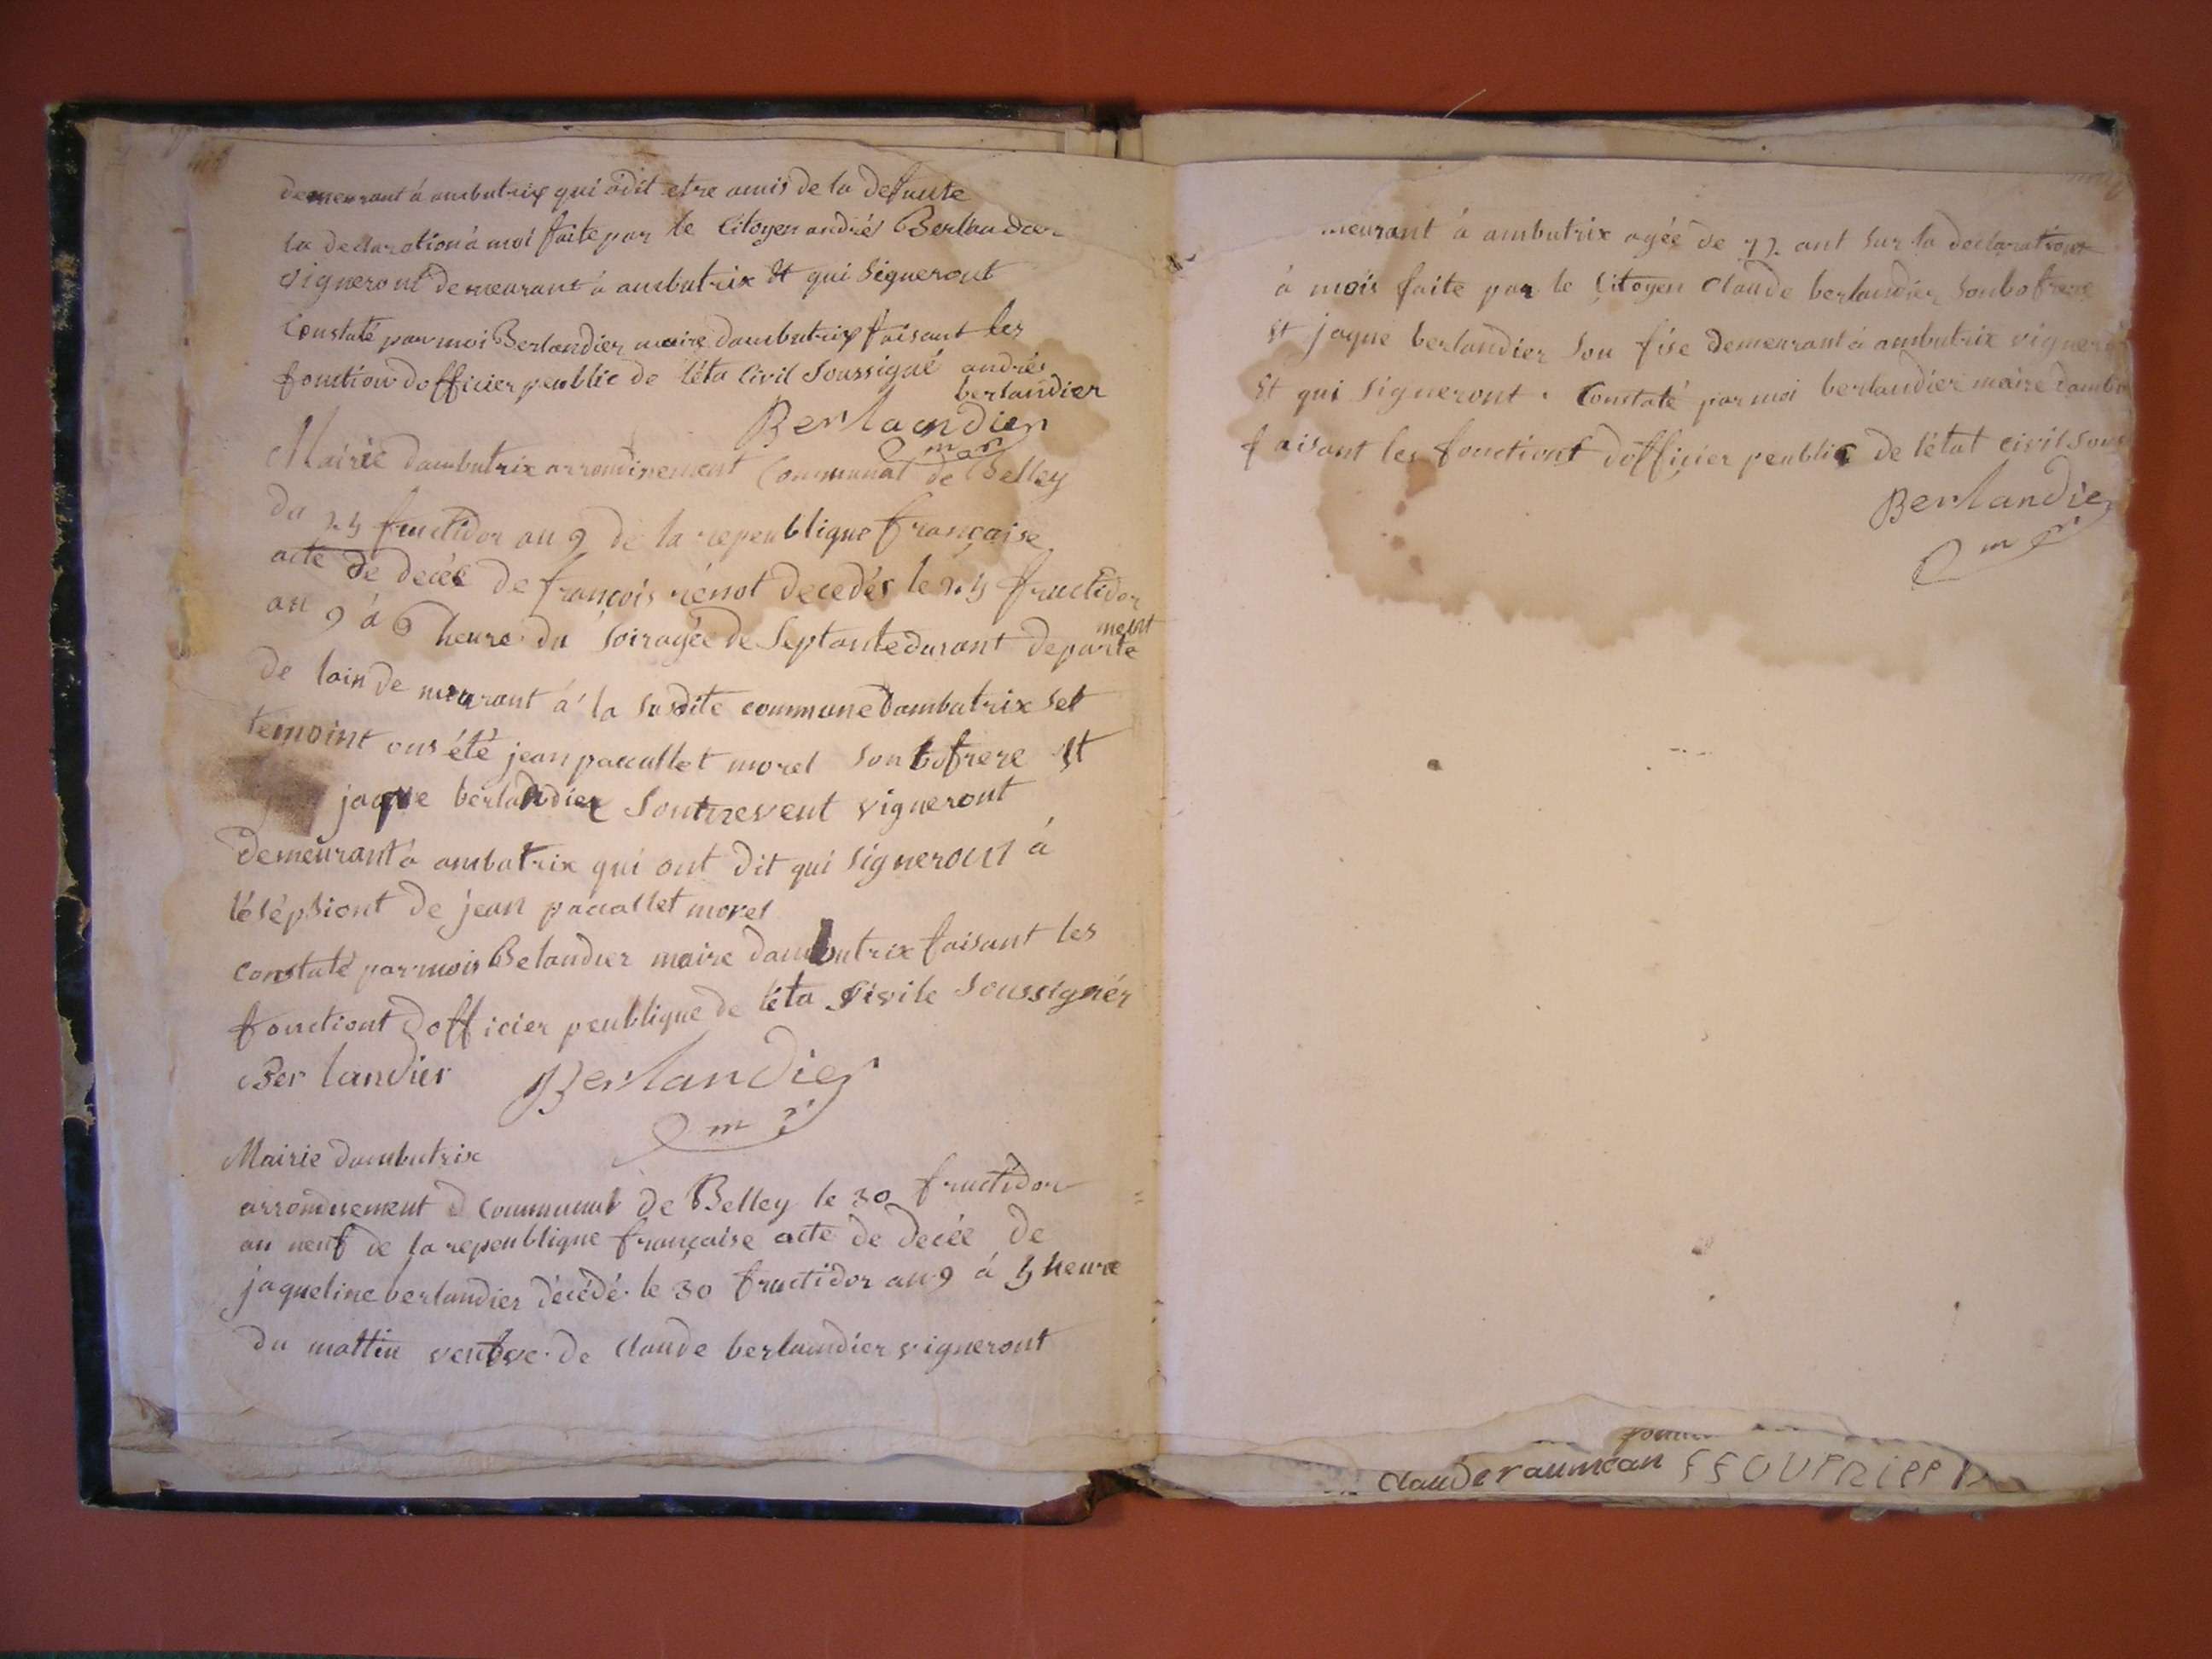 demeurant à ambutrix qui adit etre amis de la defunte
la declaration à moi faite par le Citoyen andré Berlandier
vigneront demeurant à ambutrix Et qui Signeront
Constaté par moi Berlandier maire dambutrix faisant les
fonction dofficier peublic de léta Civil Soussigné andrés
berlandier
Berlandier
Mairie dambutrix arrondirement Communal de Belley
du 24 fructidor an 9 de la repeublique française
acte de decée de françois rénot decedés le 24 fructidor
an 9 à 6 heure du Soir agée de Septante du ant departe
ment
de lain de meurant á la Susdite commune dambutrix Set
temoint ons été jean paccallet morel Son bofrere Et
jaque berlandier Son nevent vigneront
demeurant à ambutrix qui ont dit qui Signeront à
lésépsiont de jean paccallet morel
constaté par mois Belandier maire dambutrix faisant les
fonctiont dofficier peublique de léta Sivile Soussignér
Ber landier Berlandier
Mairie dambutrix
arrondisement communal de Belley le 30 fructidor
an neuf de la repeublique française acte de decée de
jaqueline berlandier décédé le 30 fructidor an 9 à 4 heure
du mattin veutve de Claude berlandier vigneront
meurant à ambutrix agée de 72 ant Sur la déclarationt
à mois faite par le Citoyen Claude berlandier Son bofrere
Et jaque berlandier Son fise demeurant à ambutrix
Et qui Signeront. Constaté par moi berlandier maire
faisant les fonctiont dofficier peublic de létat civil
Berlandier
Claude raumean